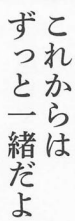 これからは
ずっと一緒だよ